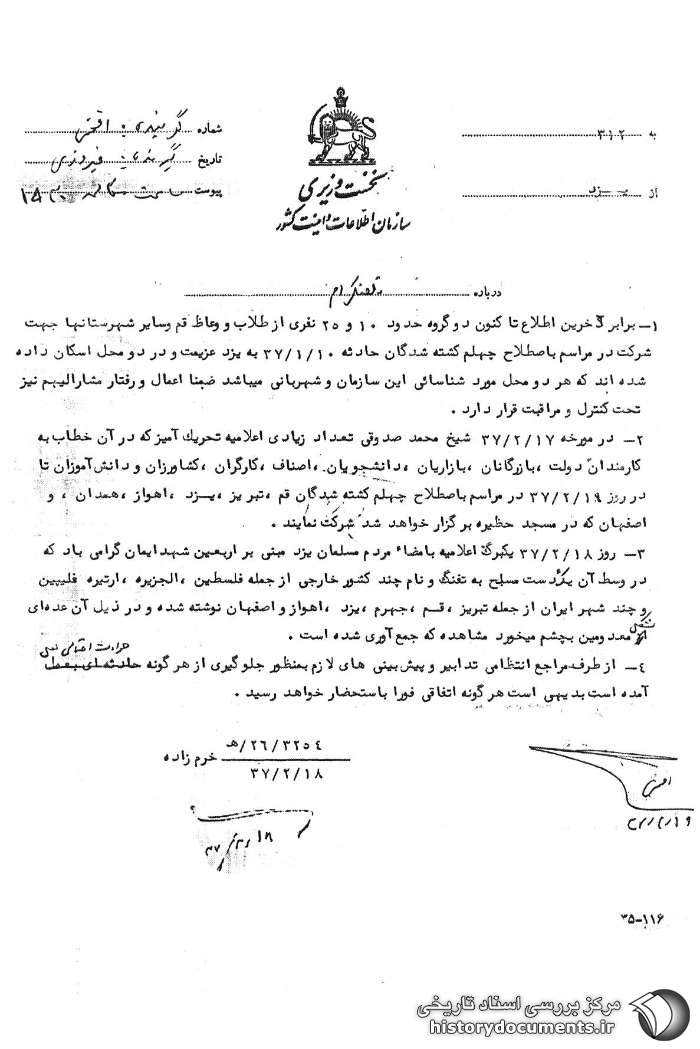 به ۳۱۲
از یزد
شماره
تاریخ
پیوست
نخست وزیری
سازمان اطلاعات و امنیت کشور
درباره تلفنگرام
۱- برابر آخرین اطلاع تا کنون دو گروه حدود ۱۰ و ۲۵ نفری از طلاب و وعاظ قم و سایر شهرستانها جهت
شرکت در مراسم باصطلاح چهلم کشته شدگان حادثه ۳۷/۱/۱۰ به یزد عزیمت و در دو محل اسکان داده
شده اند که هر دو محل مورد شناسائی این سازمان و شهربانی میباشد ضمنا اعمال و رفتار مشارالیهم نیز
تحت کنترل و مراقبت قرار دارد .
۲- در مورخه ۳۷/۲/۱۷ شیخ محمد صدوقی تعداد زیادی اعلامیه تحریک آمیز که در آن خطاب به
کارمندان دولت ، بازرگانان ، بازاریان ، دانشجویان ، اصناف ، کارگران ، کشاورزان و دانش آموزان تا
در روز ۳۷/۲/۱۹ در مراسم باصطلاح چهلم کشته شدگان قم ، تبریز ، یزد ، اهواز ، همدان ، و
اصفهان که در مسجد حظیره برگزار خواهد شد شرکت نمایند .
۳- روز ۳۷/۲/۱۸ یکبرگ اعلامیه بامضاء مردم مسلمان یزد مبنی بر اربعین شهدا یمان گرامی باد که
در وسط آن یکدست مسلح به تفنگ و نام چند کشور خارجی از جمله فلسطین ، الجزیره ، ارتیره فلیپین
و چند شهر ایران از جمله تبریز ، قم ، جهرم ، یزد ، اهواز و اصفهان نوشته شده و در ذیل آن عده‌ای
از معدومین بچشم میخورد مشاهده که جمع آوری شده است .
۴- از طرف مراجع انتظامی تدابیر و پیش بینی های لازم بمنظور جلوگیری از هر گونه حادثه ای بعمل
آمده است بدیهی است هر گونه اتفاقی فورا باستحضار خواهد رسید .
۲۶/۳۲۵۴/هـ
خرم زاده
۳۷/۲/۱۸
۳۷/۲/۱۸
۳۷/۲/۱۹
۳۵-۱۱۶
مرکز بررسی اسناد تاریخی
historydocuments.ir